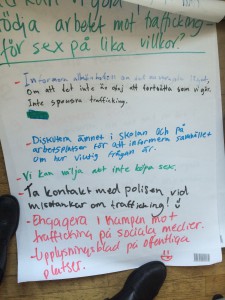 kan vi göra
stödja arbetet mot trafficking
för sex på lika villkor?
Informera allmänheten om det nuvarande läget,
om att det inte är okej att fortsätta som vi gör.
Inte sponsra trafficking.
- Diskutera ämnet i skolan och på
arbetsplatser för att informera samhället
om hur viktig frågan är.
- Vi kan välja att inte köpa sex.
- Ta kontakt med polisen vid
misstankar om trafficking!
- Engagera i kampen mot
trafficking på sociala medier.
- Upplysningsblad på offentliga
platser.